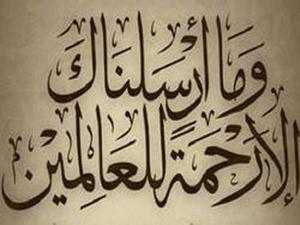 وَمَا أَرْسَلْنَاكَ
إِلَّا رَحْمَةً لِلْعَالَمِيْنَ